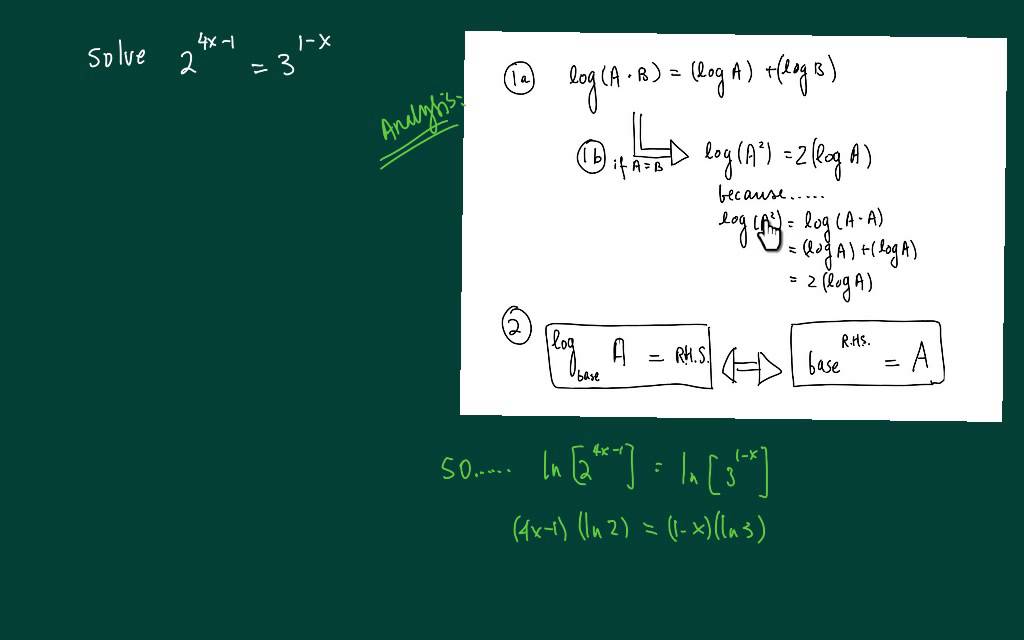 solve 2^(4x-1) = 3^(1-x)
Analysis:
1a log(A·B) = (log A) + (log B)
1b if A=B log(A²) = 2(log A)
because.....
log(A²) = log(A·A)
= (log A) + (log A)
= 2(log A)
2 log_base A = R.H.S. ⇔ base^(R.H.S.) = A
SO...... ln[2^(4x-1)] = ln[3^(1-x)]
(4x-1)(ln 2) = (1-x)(ln 3)